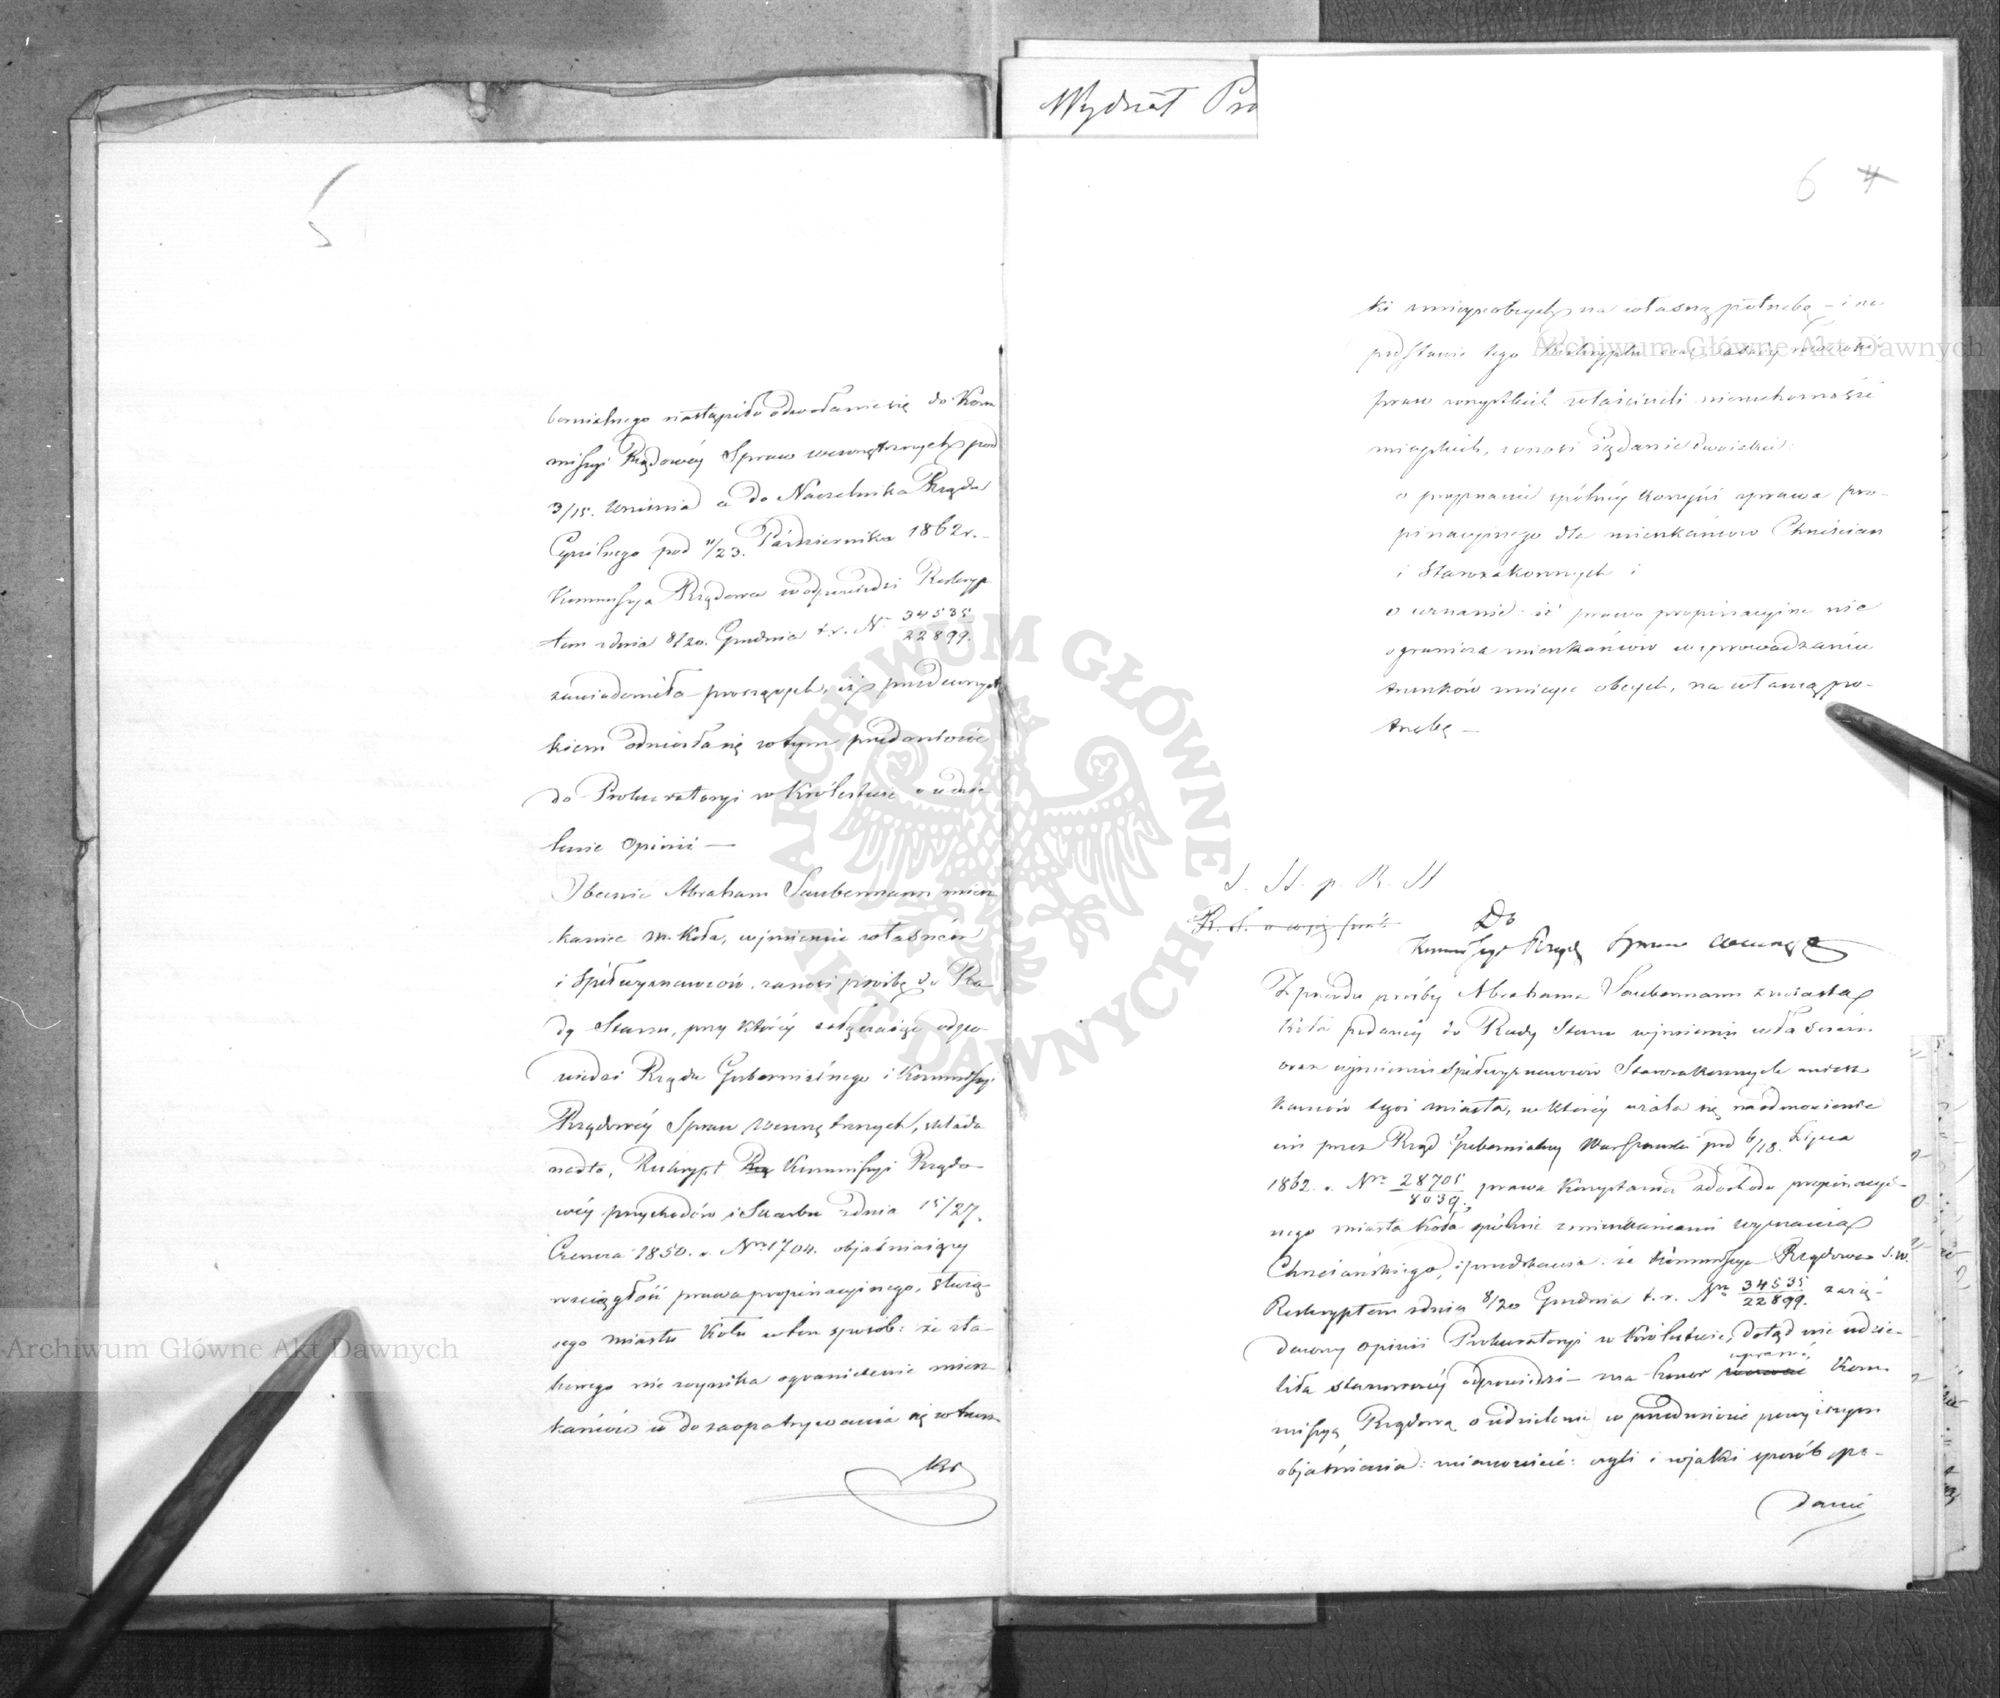 5
bernialnego nastąpiło odwołanie się do Kom
missyi Rządowéj Spraw wewnętrznych pod
3/15. Września a do Naczelnika Rządu
Cywilnego pod 11/23. Października 1862 r. –
Kommissya Rządowa w odpowiedzi Reskryp
tem z dnia 8/20. Grudnia t. r. Nr 34535/22899.
zawiadomiła proszących, iż przedewszyst
kiem odniosła się w tym przedmiocie
do Prokuratoryi w Królestwie o udzie
lenie opinii —
Obecnie Abraham Sauberman miesz
kaniec m. Koła, w imieniu własném
i Spółwyznawców, zanosi prośbę do Ra
dy Stanu, przy któréj załączając odpo
wiedzi Rządu Gubernialnego i Kommissyi
Rządowéj Spraw Wewnętrznych, składa
nadto, Reskrypt Kommissyi Rządo
wéj przychodów i Skarbu z dnia 15/27.
Czerwca 1850. r. Nr 1704. objaśniający
rozciągłość prawa propinacyjnego, służą
cego miastu Kołu w ten sposób: że z ta
kowego nie wynika ograniczenie miesz
kańców w do zaopatrywania się w trun
ki
Wydział Pro
6 4
ki z miejsc obcych, na własną potrzebę – i na
podstawie tego Reskryptu oraz zasady równości
praw wszystkich właścicieli nieruchomości
miejskich, zanosi żądanie dwojakie:
o przyznanie spólnéj korzyści z prawa pro-
pinacyjnego dla mieszkańców Chrześcian
i Starozakonnych i
o uznanie iż prawo propinacyjne nie
ogranicza mieszkańców w sprowadzaniu
trunków z miejsc obcych, na własną po-
trzebę –
S. St. p. R. St
Do
Kommissyi Rządo Spraw Wewnę
Z powodu prośby Abrahama Sauberman z miasta
Koła podanéj do Rady Stanu w imieniu własném
oraz w imieniu Spółwyznawców Starozakonnych miesz
kańców tegoż miasta, w któréj użala się na odmówienie
im przez Rząd Gubernialny Warszawski pod 6/18. Lipca
1862. r. Nr 28705/8039, prawa korzystania z dochodu propinacyj-
nego miasta Koła spólnie z mieszkańcami wyznania
Chrześciańskiego, i przedstawia: że Kommissya Rządowa S. W.
Reskryptem z dnia 8/20 Grudnia t. r. Nr 34535/22899. zażą-
dawszy opinii Prokuratoryi w Królestwie, dotąd nie udzie-
liła stanowczéj odpowiedzi – ma honor wezwać uprosić Kom-
missyą Rządową o udzielenie w przedmiocie powyższym
objaśnienia: mianowicie: czyli i w jaki sposób po-
danie